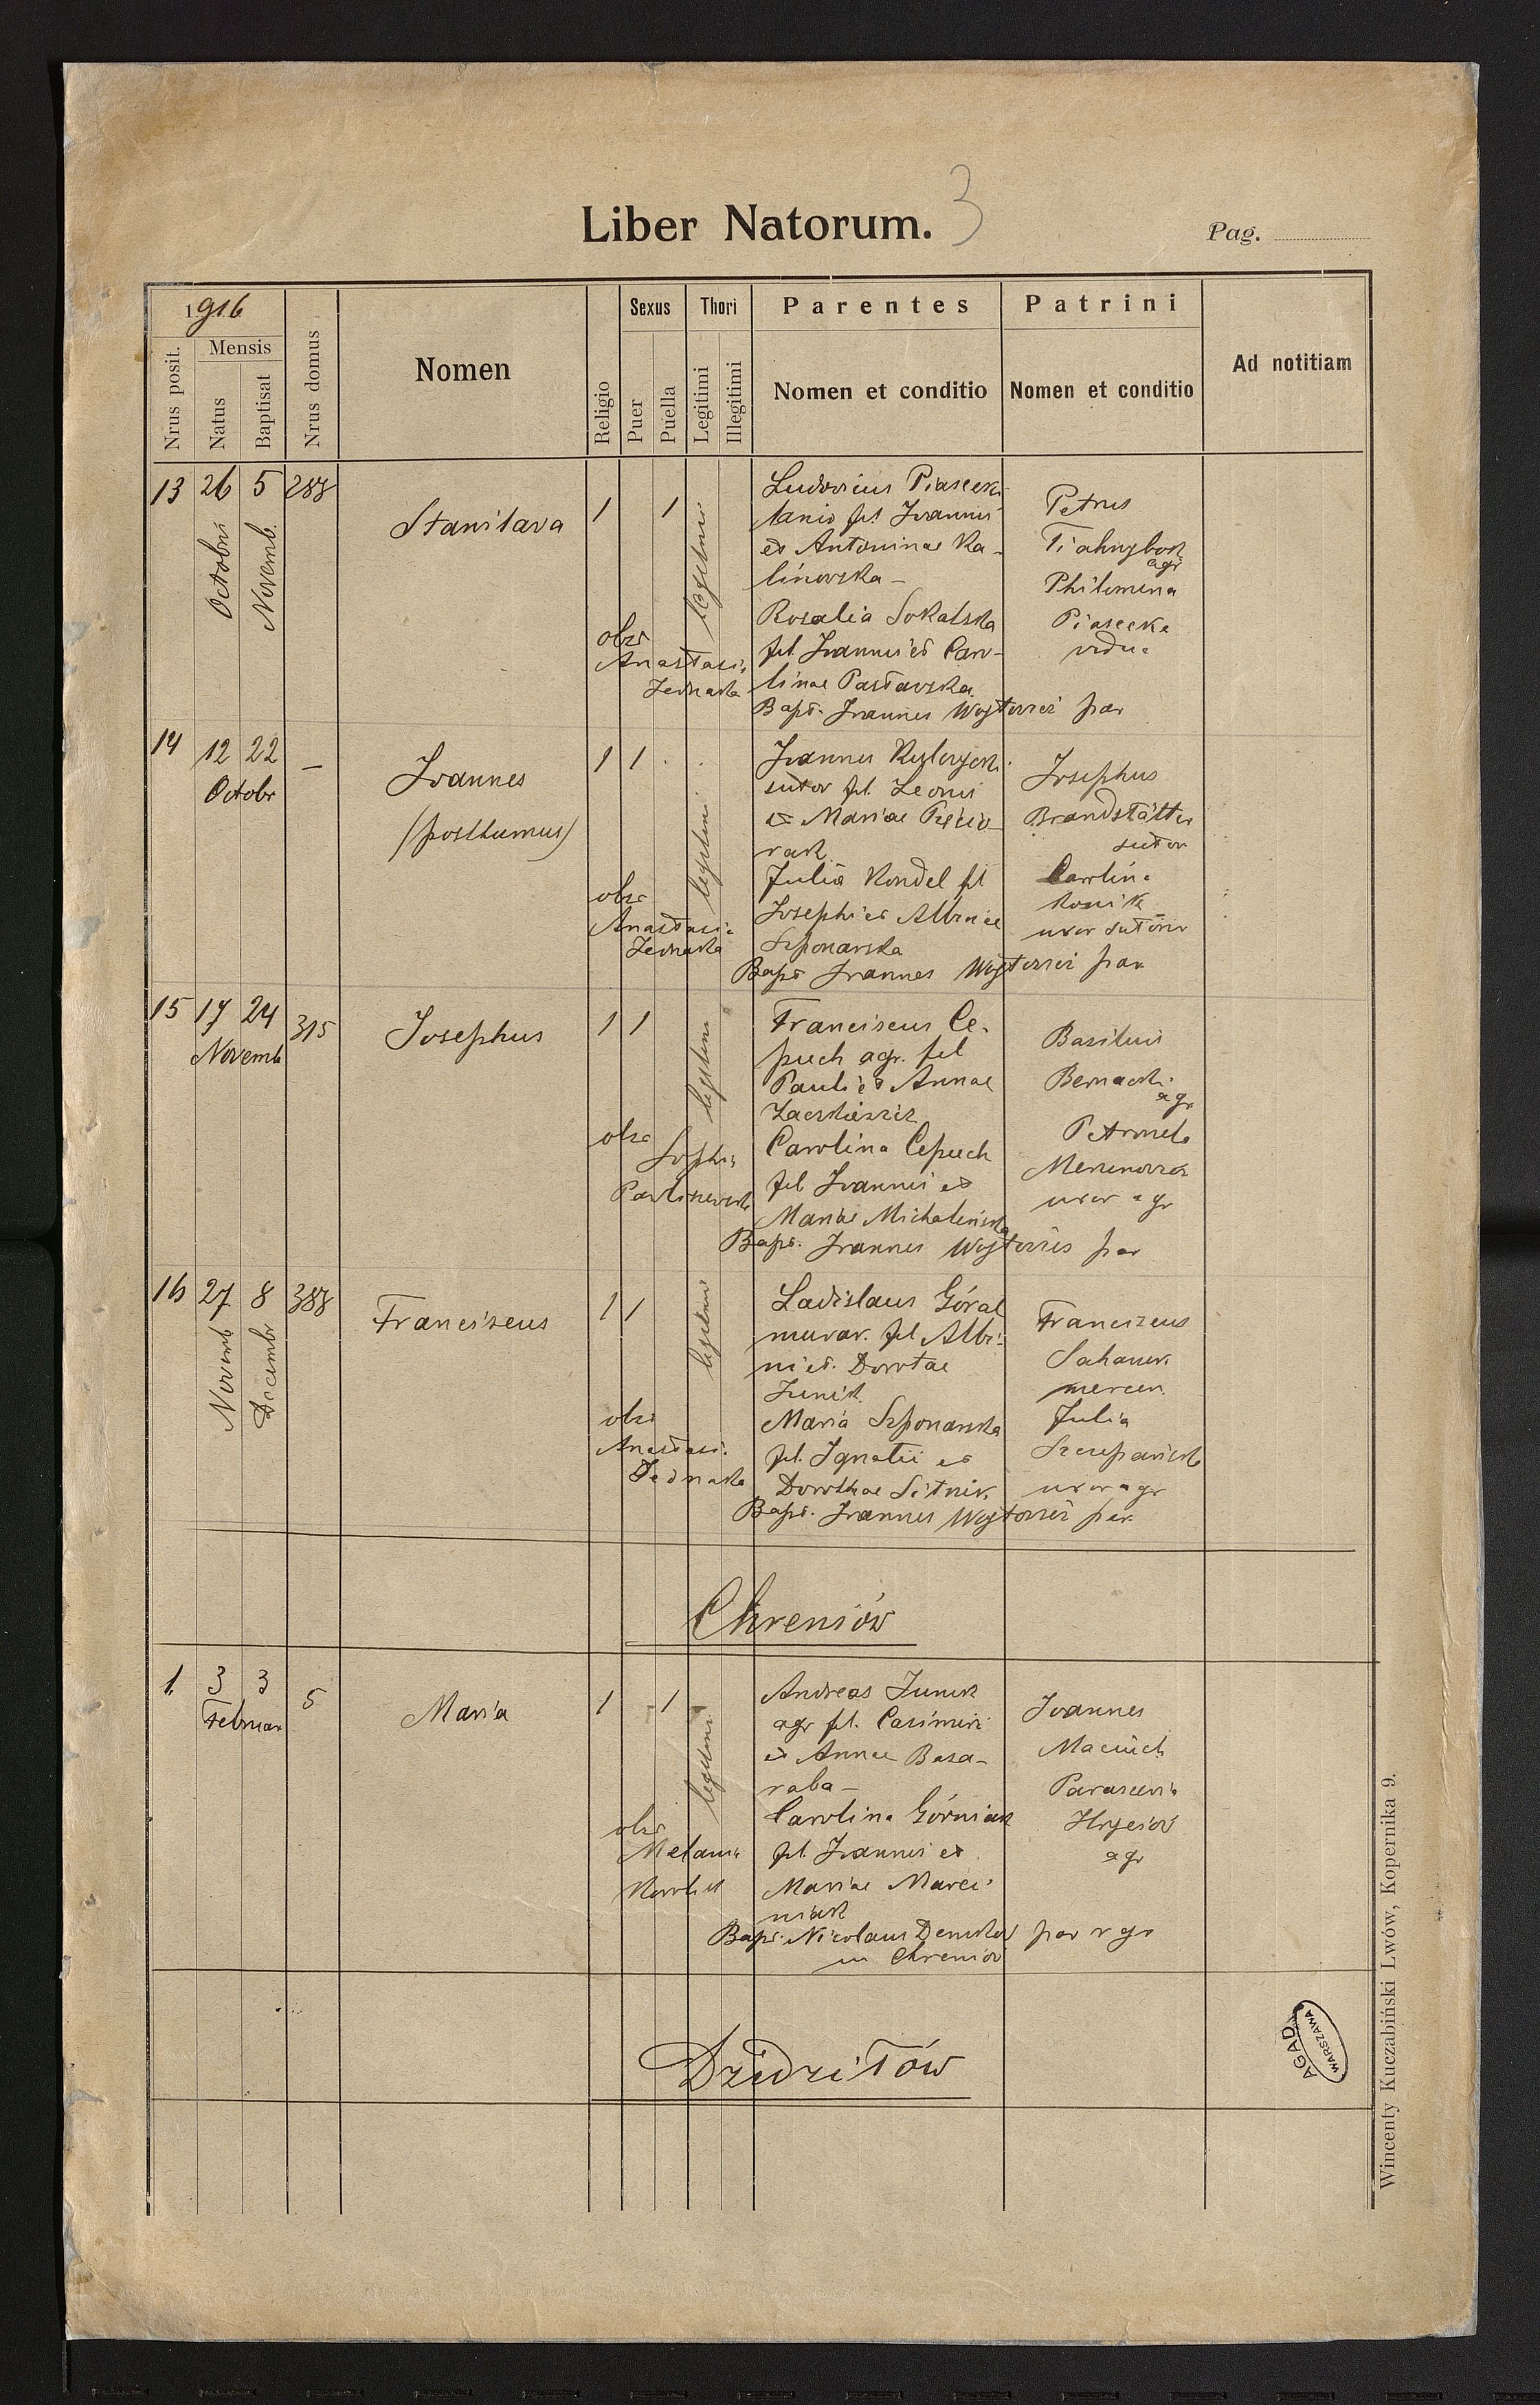 Liber Natorum. 3
Pag.
1916
Nrus posit.
Mensis
Natus
Baptisat
Nrus domus
Nomen
Religio
Sexus
Puer
Puella
Thori
Legitimi
Illegitimi
Parentes
Nomen et conditio
Patrini
Nomen et conditio
Ad notitiam
13 26 5 288
Octobris Novemb.
Stanislava
1 1
legitimi
Ludovicus Piasecki
lanio fil Joannis
et Antoninae Ka-
linovska -
Rosalia Sokalska
fil. Joannis et Caro-
linae Pastavska
obst
Anastasia
Jednaka
Petrus
Tiahnybok
agr
Philomena
Piasecka
vidua
Bapt. Joannes Wojtovicz par
14 12 22 -
Octobr
Joannes
(posthumus)
1 1
legitimi
Joannes
sutor fil. Leonis
et Mariae
Julia Kondel fil
Josephi et Albinae
Szponarska
obst
Anastasia
Jednaka
Josephus
Brandstätter
sutor
Carolina
Konik
uxor sutoris
Bapt Joannes Wojtovicz par
15 17 24 315
Novemb
Josephus
1 1
legitimi
Franciscus Ce-
puch agr. fil
Pauli et Annae
Carolina Cepuch
fil Joannis et
Mariae Michalenska
obst
Sophia
Basilius
Bernacki
agr
Petronela
uxor agr
Bapt. Joannes Wojtovicz par
16 27 8 388
Novemb Decembr
Franciscus
1 1
legitimi
Ladislaus Góral
murar. fil Albi-
ni et Dorotae
Junik
Maria Szponarska
fil. Ignatii et
Dorothae Sitnik
obst
Anastasia
Jednaka
Franciscus
Sahanek
mercen.
Julia
Szczepańska
uxor agr
Bapt. Joannes Wojtovicz par
Chreniów
1 3 3 5
Februar
Maria
1 1
legitimi
Andreas Junik
agr fil. Casimiri
et Annae Basa-
raba -
Carolina Górniak
fil. Joannis et
Mariae Marci-
niak
obst
Melania
Joannes
Maciuch
Parascevia
agr
Bapt. Nicolaus par r gr
in Chreniów
Dzidziłów
AGAD
WARSZAWA
Wincenty Kuczabiński Lwów, Kopernika 9.